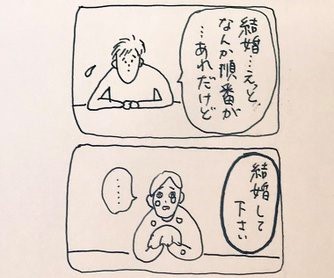 結婚…えっと、
なんか順番が
…あれだけど
結婚して
下さい
……